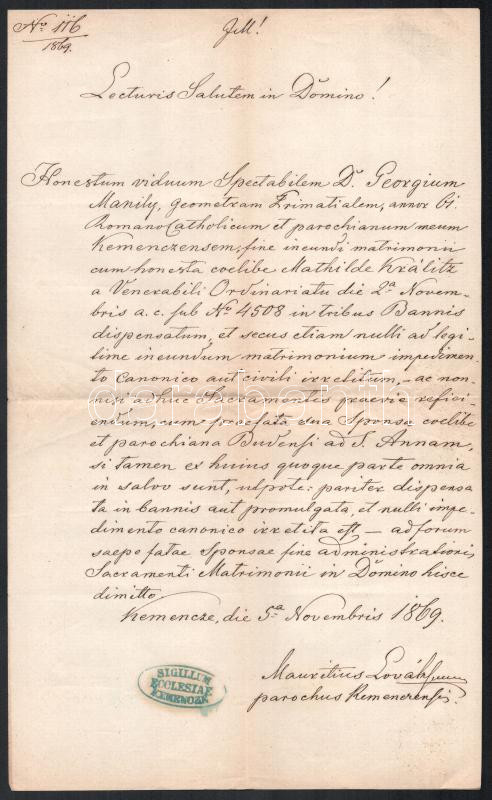 No. 116
1869.
Lecturis Salutem in Domino!
Honestum viduum Spectabilem D. Georgium
Manily, Geometram Primatialem, annor 61.
Romano Catholicum et parochianum meum
Kemenczensem, fine ineundi matrimonii
cum honesta coelibe Mathilde Králitz
a Venerabili Ordinariatu die 2a Novem-
bris a. c. sub No. 4508 in tribus Bannis
dispensatum, et secus etiam nulli ad legi-
time ineundum matrimonium impedimen-
to canonico aut civili irretitum, - ac non-
nisi adhuc Sacramentis praevie refici-
endum, cum praefata sua Sponsa coelibe
et parochiana Budensi ad S. Annam,
si tamen ex huius quoque parte omnia
in salvo sunt, utpote: pariter dispensa
ta in bannis aut promulgata, et nulli impe-
dimento canonico irretita est - ad forum
saepe fatae Sponsae fine administrationis
Sacramenti Matrimonii in Domino hisce
dimitto.
Kemencze, die 5a Novembris 1869.
Mauritius
parochus Kemenczensis.
SIGILLUM
ECCLESIAE
KEMENCZE
databank